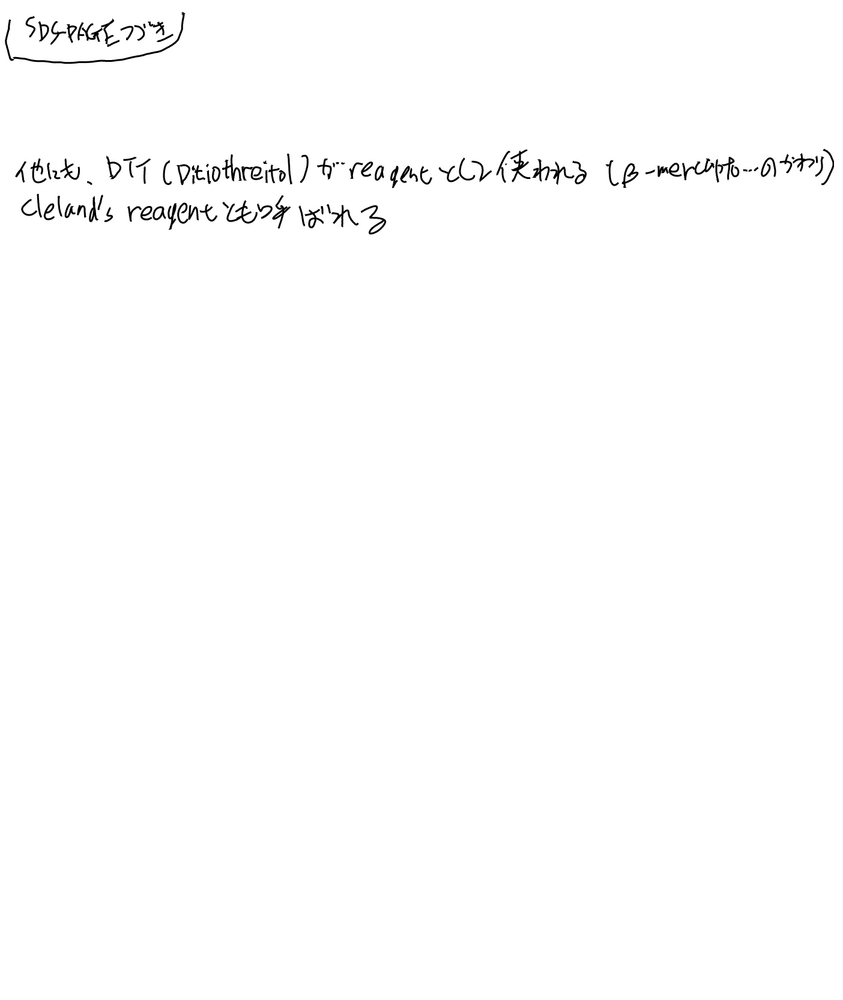 SDS-PAGEつづき
他にも、DTT (Ditiothreitol) が reagent として使われる (β-mercapto…のかわり)
Cleland's reagent とも呼ばれる